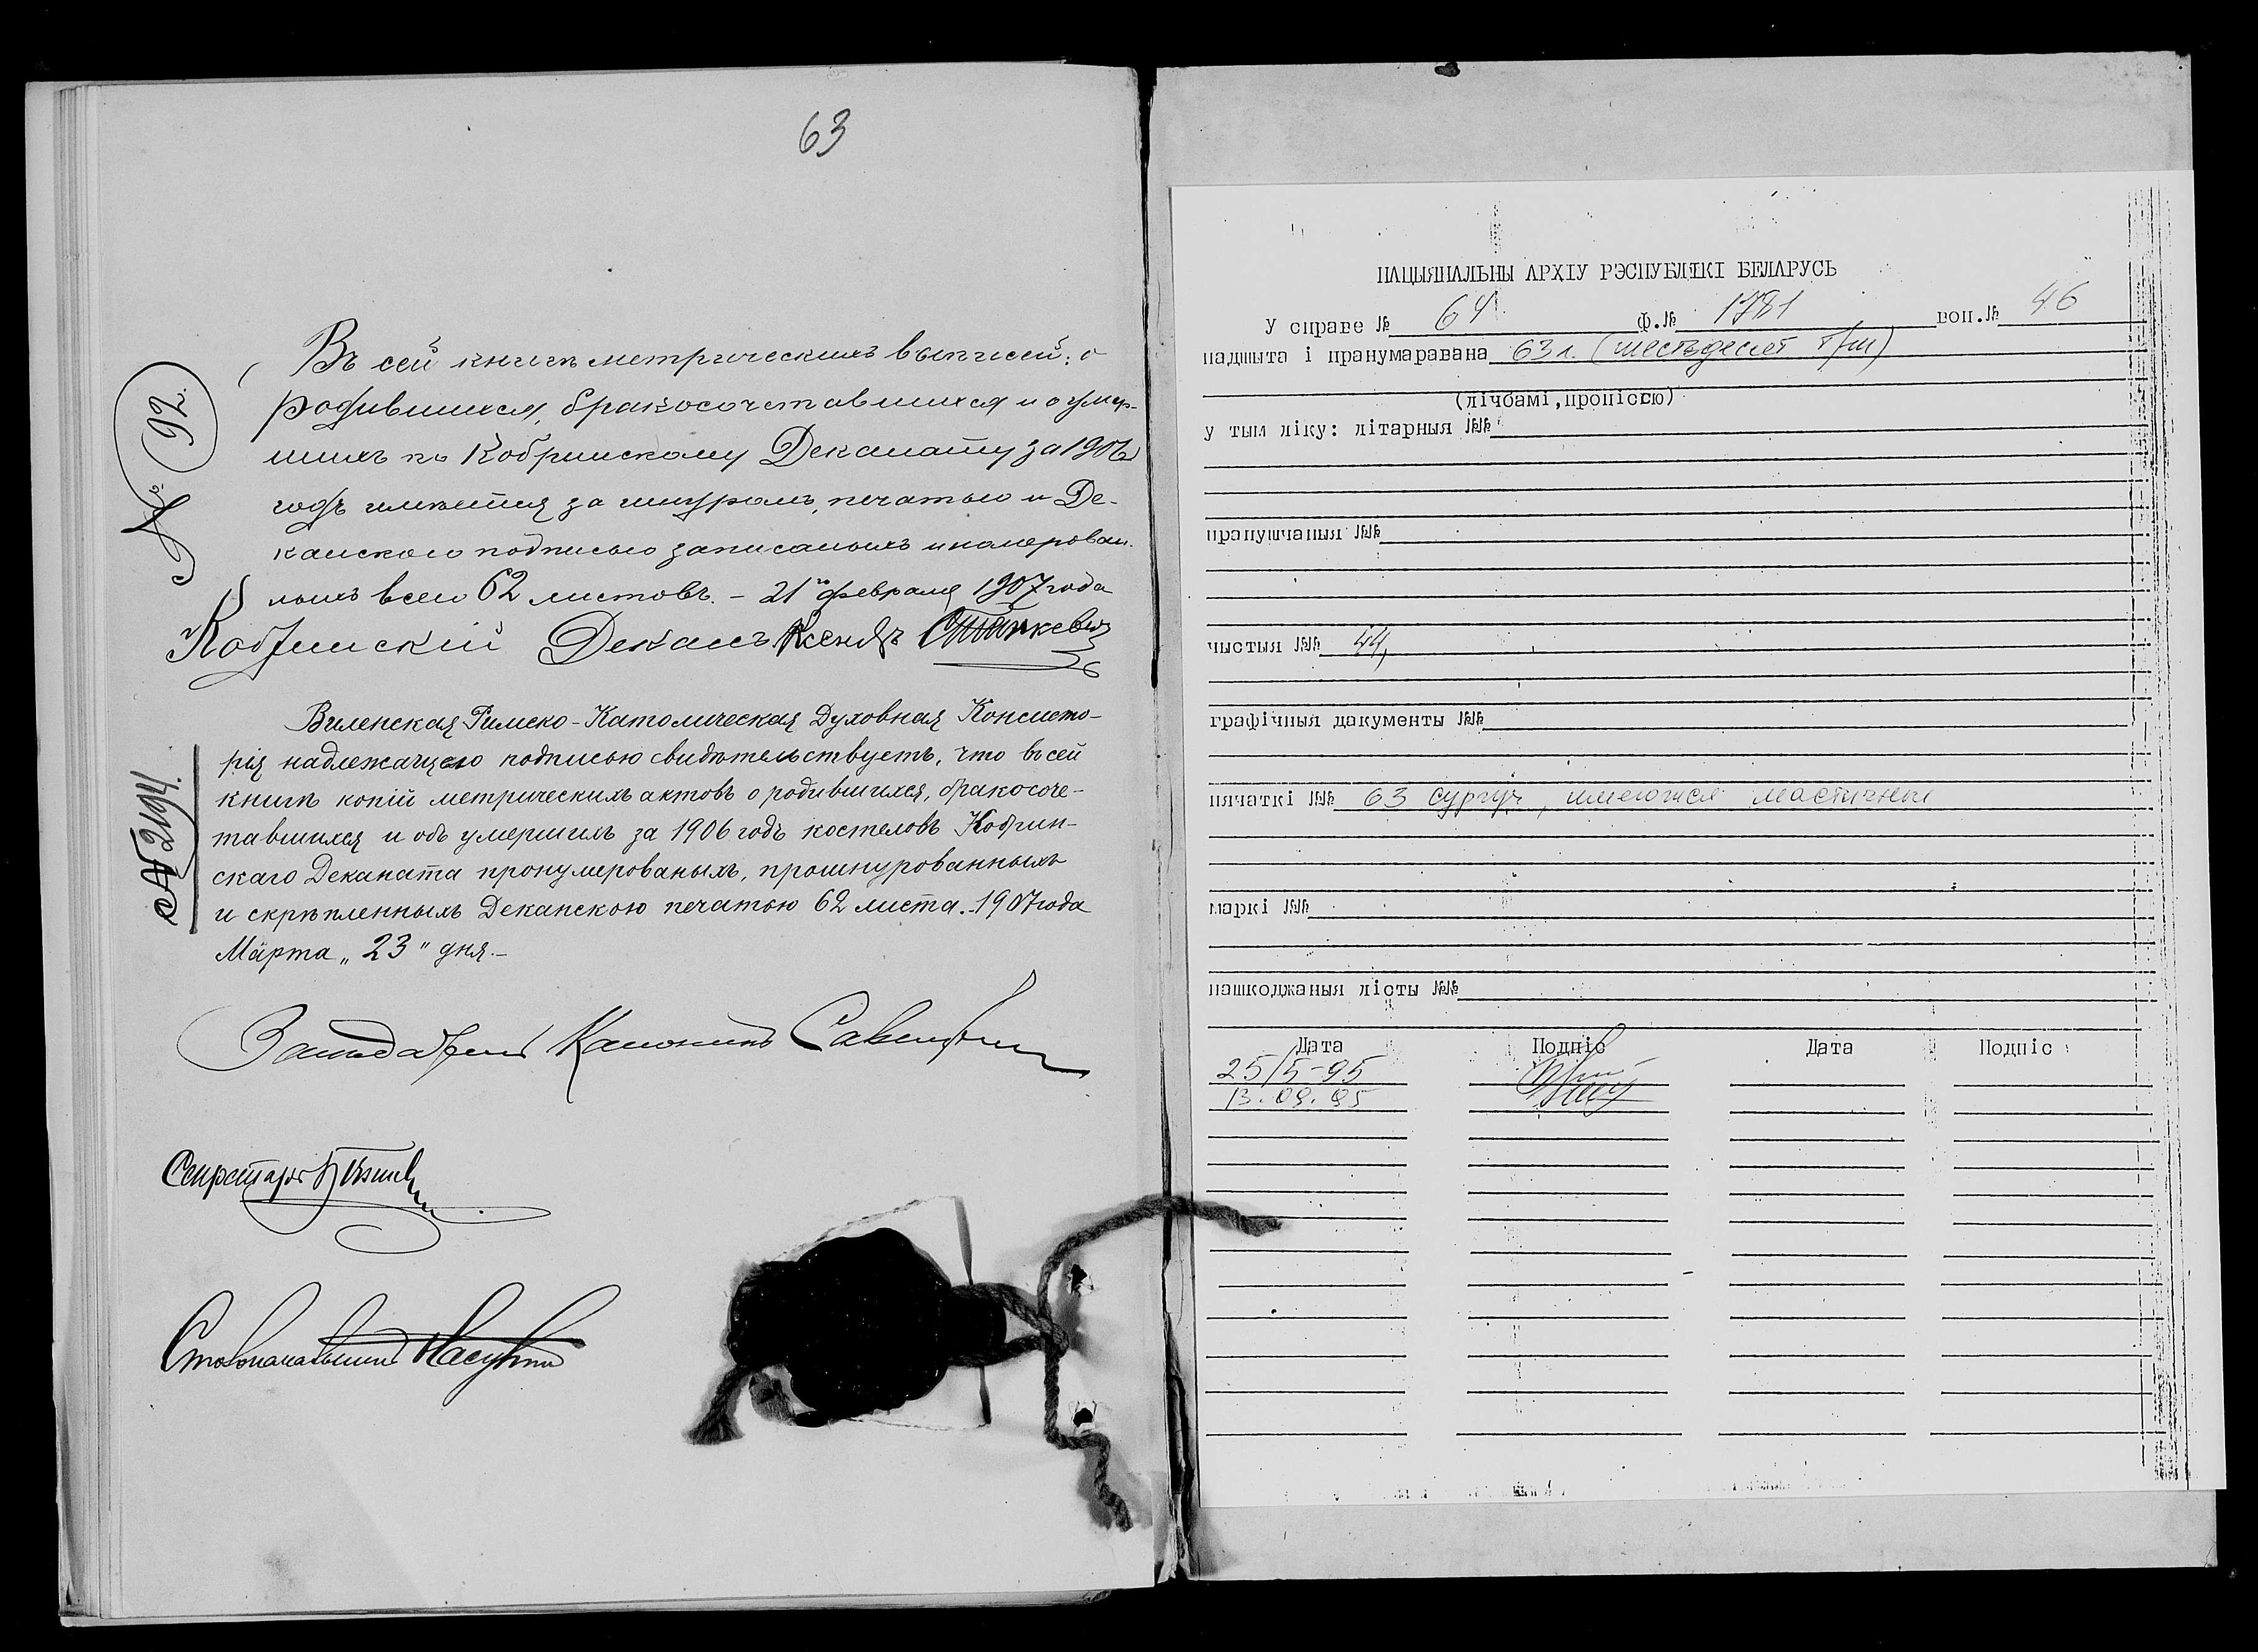 63
№ 92.
Въ сей книгѣ метрическихъ выписей: о
родившихся, бракосочетавшихся и о умер-
шихъ по Кобринскому Деканату за 1906
годъ имѣется за шнуромъ, печатью и Де-
канскою подписью записанныхъ и номерован-
ныхъ всего 62 листовъ. – 21го февраля 1907 года
Кобринскій Деканъ Ксендзъ
№ 2194.
Виленская Римско-Католическая Духовная Консисто-
рія надлежащею подписью свидѣтельствуетъ, что въ сей
книгѣ копій метрическихъ актовъ о родившихся, бракосоче-
тавшихся и объ умершихъ за 1906 годъ костеловъ Кобрин-
скаго Деканата пронумерованыхъ, прошнурованныхъ
и скрѣпленныхъ Деканскою печатью 62 листа. 1907 года
Марта „23" дня.–
Засѣдатель Каноникъ
Секретарь
Столоначальникъ
НАЦЫЯНАЛЬНЫ АРХІУ РЭСПУБЛІКІ БЕЛАРУСЬ
У справе № 64 Ф.№ 1781 воп.№ 46
падшыта і пранумаравана 63 л. (шестьдесят три)
(лічбамі,пропіссю)
у тым ліку: літарныя №№
прапушчаныя №№
чыстыя №№ 44,
графічныя дакументы №№
пячаткі №№ 63 сургуч, имеются мастичные
маркі №№
пашкоджаныя лісты №№
Дата Подпіс Дата Подпіс
25/5-95
13.09.95